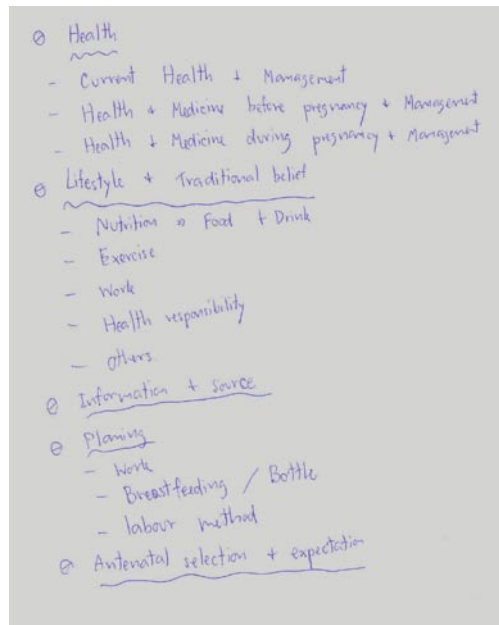 Health
- Current Health + Management
- Health + Medicine before pregnancy + Management
- Health + Medicine during pregnancy + Management
Lifestyle + Traditional belief
- Nutrition » Food + Drink
- Exercise
- Work
- Health responsibility
- others
Information + source
Planing
- Work
- Breastfeeding / Bottle
- labour method
Antenatal selection + expectation